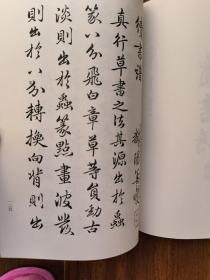 續書譜
真行草書之法其源出於蟲
篆八分飛白章草等員勁古
淡則出於蟲篆點畫波發
則出於八分轉換向背則出